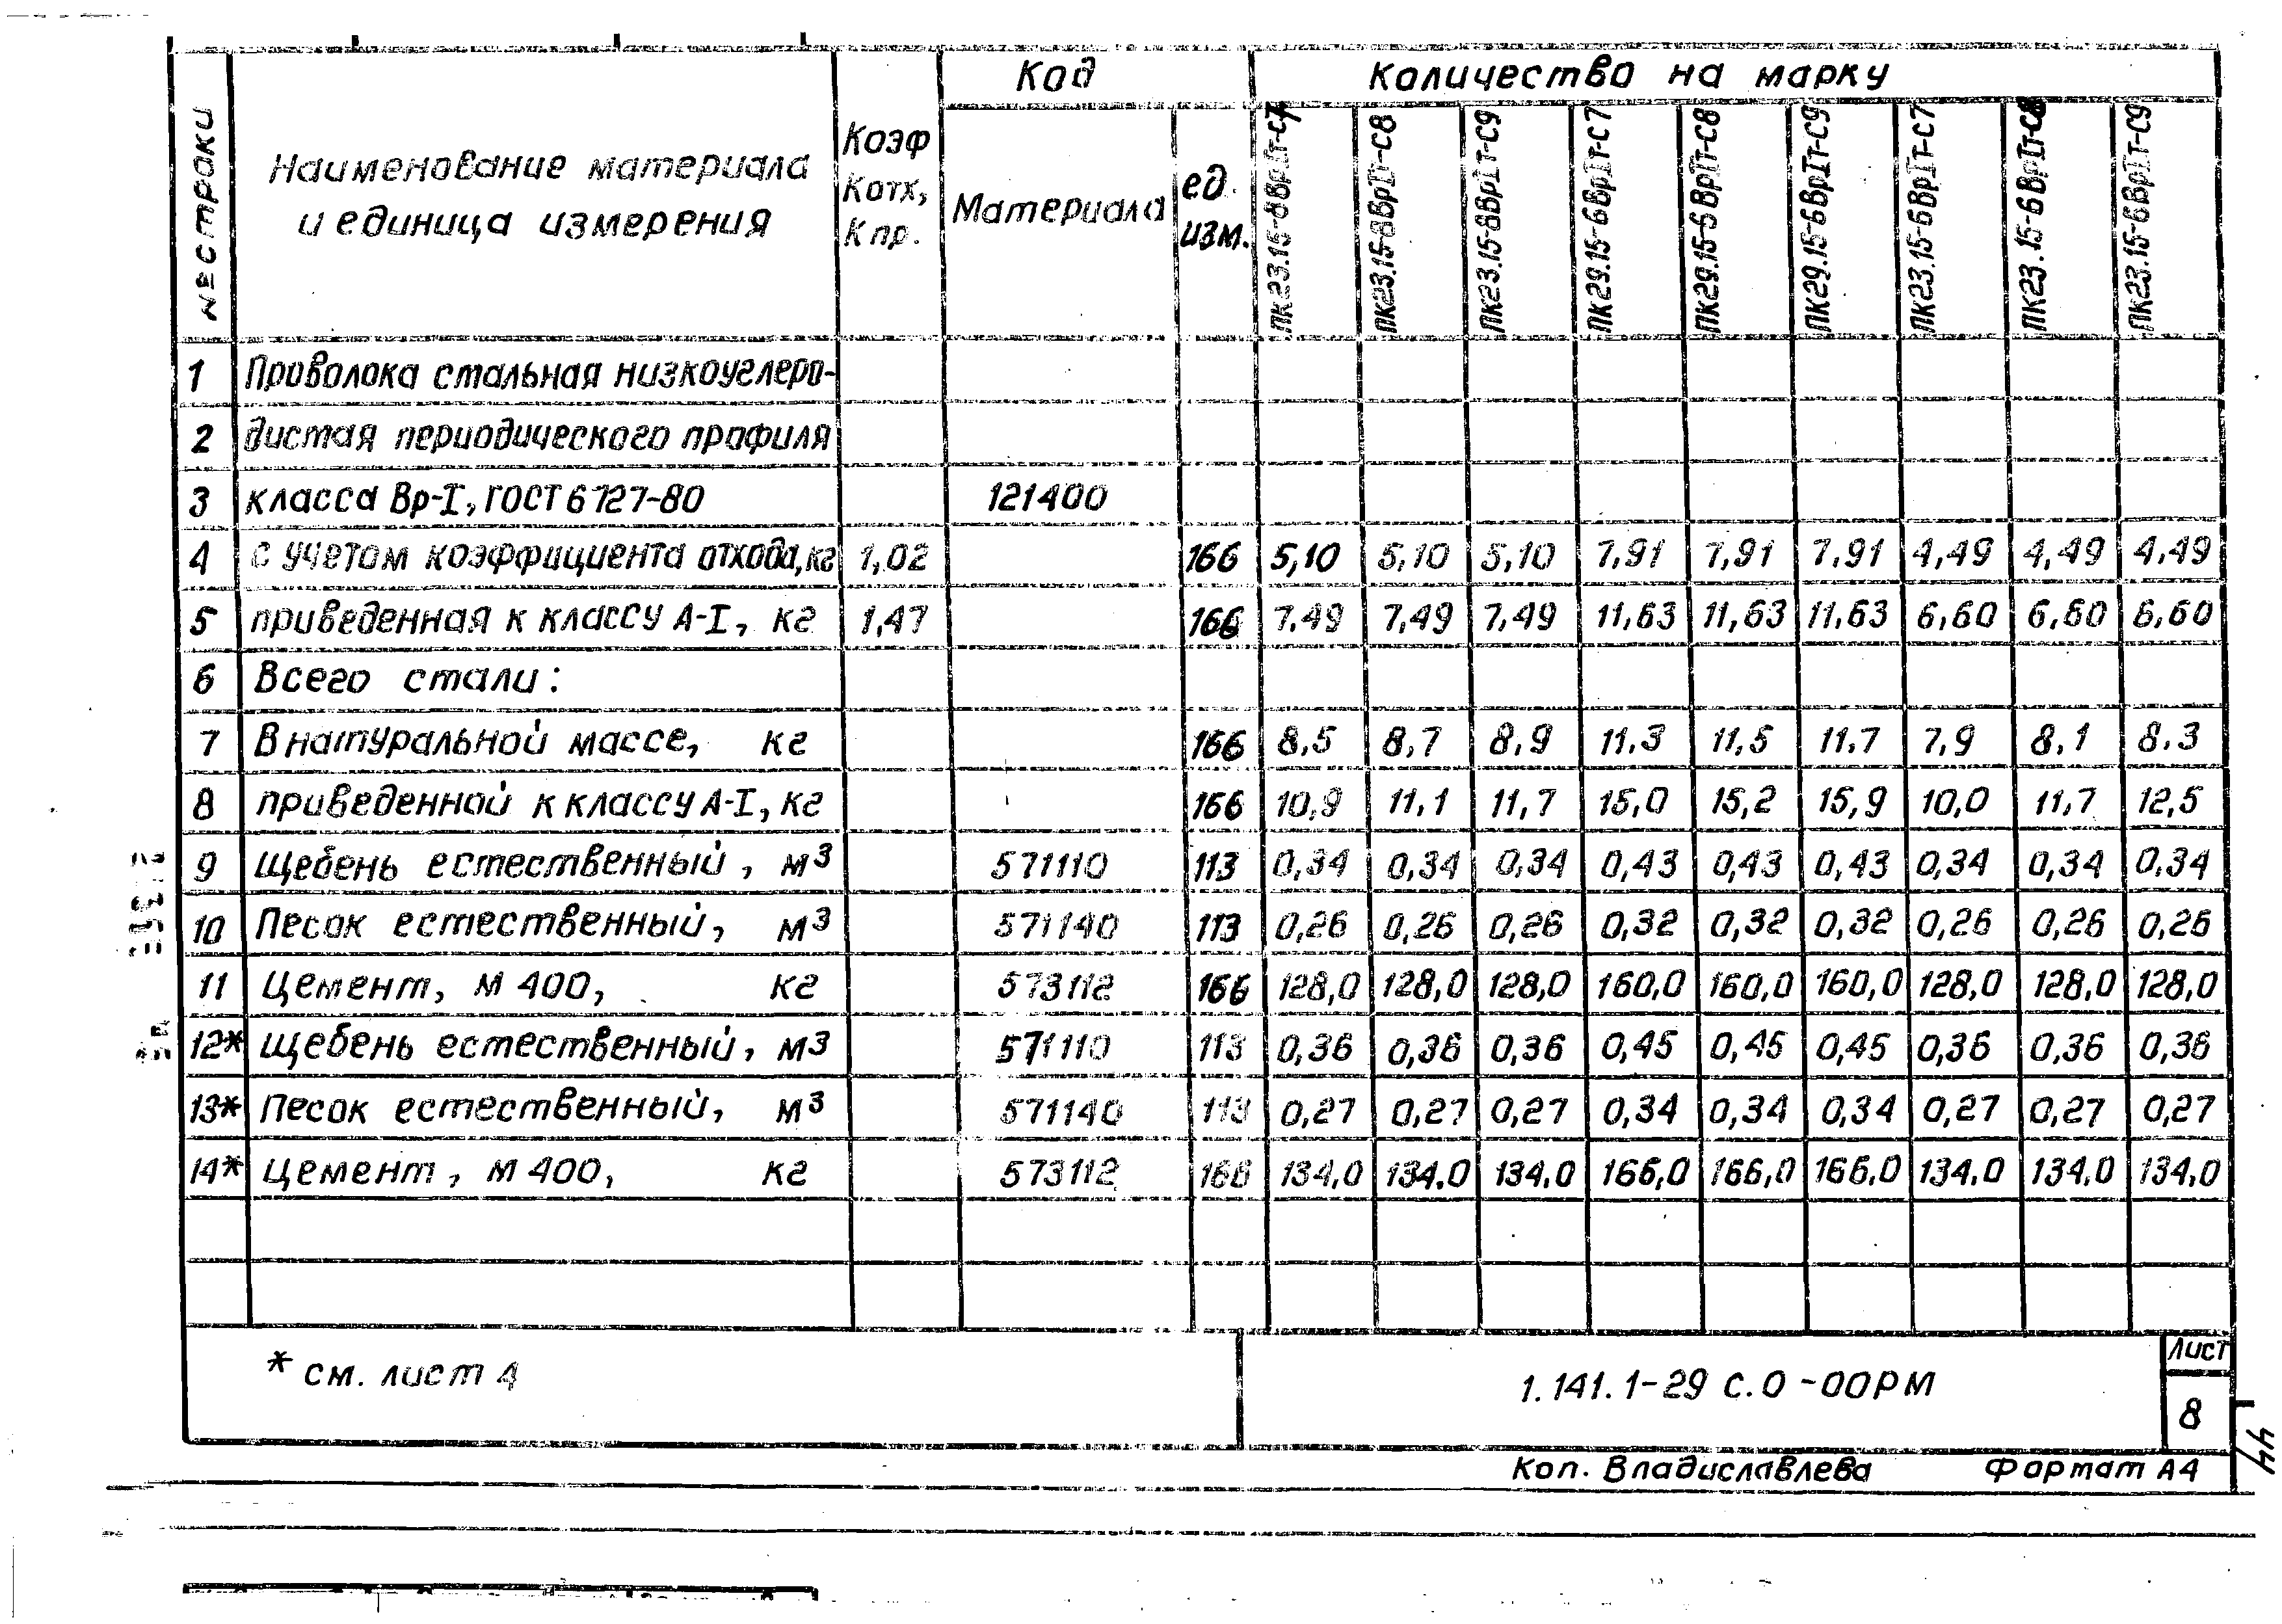 № строки
Наименование материала
и единица измерения
Коэф
Котх,
Кпр.
Код
Материала
ед.
изм.
Количество на марку
ПК23.15-8ВрIт-С7
ПК23.15-8ВрIт-С8
ПК23.15-8ВрIт-С9
ПК29.15-6ВрIт-С7
ПК29.15-6ВрIт-С8
ПК29.15-6ВрIт-С9
ПК23.15-6ВрIт-С7
ПК23.15-6ВрIт-С8
ПК23.15-6ВрIт-С9
1 Проволока стальная низкоуглеро-
2 дистая периодического профиля
3 класса Вр-I, ГОСТ 6727-80 121400
4 с учетом коэффициента отхода, кг 1,02 166 5,10 5,10 5,10 7,91 7,91 7,91 4,49 4,49 4,49
5 приведенная к классу А-I, кг 1,47 166 7,49 7,49 7,49 11,63 11,63 11,63 6,60 6,60 6,60
6 Всего стали:
7 В натуральной массе, кг 166 8,5 8,7 8,9 11,3 11,5 11,7 7,9 8,1 8,3
8 приведенной к классу А-I, кг 166 10,9 11,1 11,7 15,0 15,2 15,9 10,0 11,7 12,5
9 Щебень естественный, м3 571110 113 0,34 0,34 0,34 0,43 0,43 0,43 0,34 0,34 0,34
10 Песок естественный, м3 571140 113 0,26 0,26 0,26 0,32 0,32 0,32 0,26 0,26 0,26
11 Цемент, М 400, кг 573112 166 128,0 128,0 128,0 160,0 160,0 160,0 128,0 128,0 128,0
12* Щебень естественный, м3 571110 113 0,36 0,36 0,36 0,45 0,45 0,45 0,36 0,36 0,36
13* Песок естественный, м3 571140 113 0,27 0,27 0,27 0,34 0,34 0,34 0,27 0,27 0,27
14* Цемент, М 400, кг 573112 166 134,0 134,0 134,0 166,0 166,0 166,0 134,0 134,0 134,0
* см. лист 4
1.141.1-29 с.0-00РМ
Лист
8
Коп. Владиславлева Формат А4
44